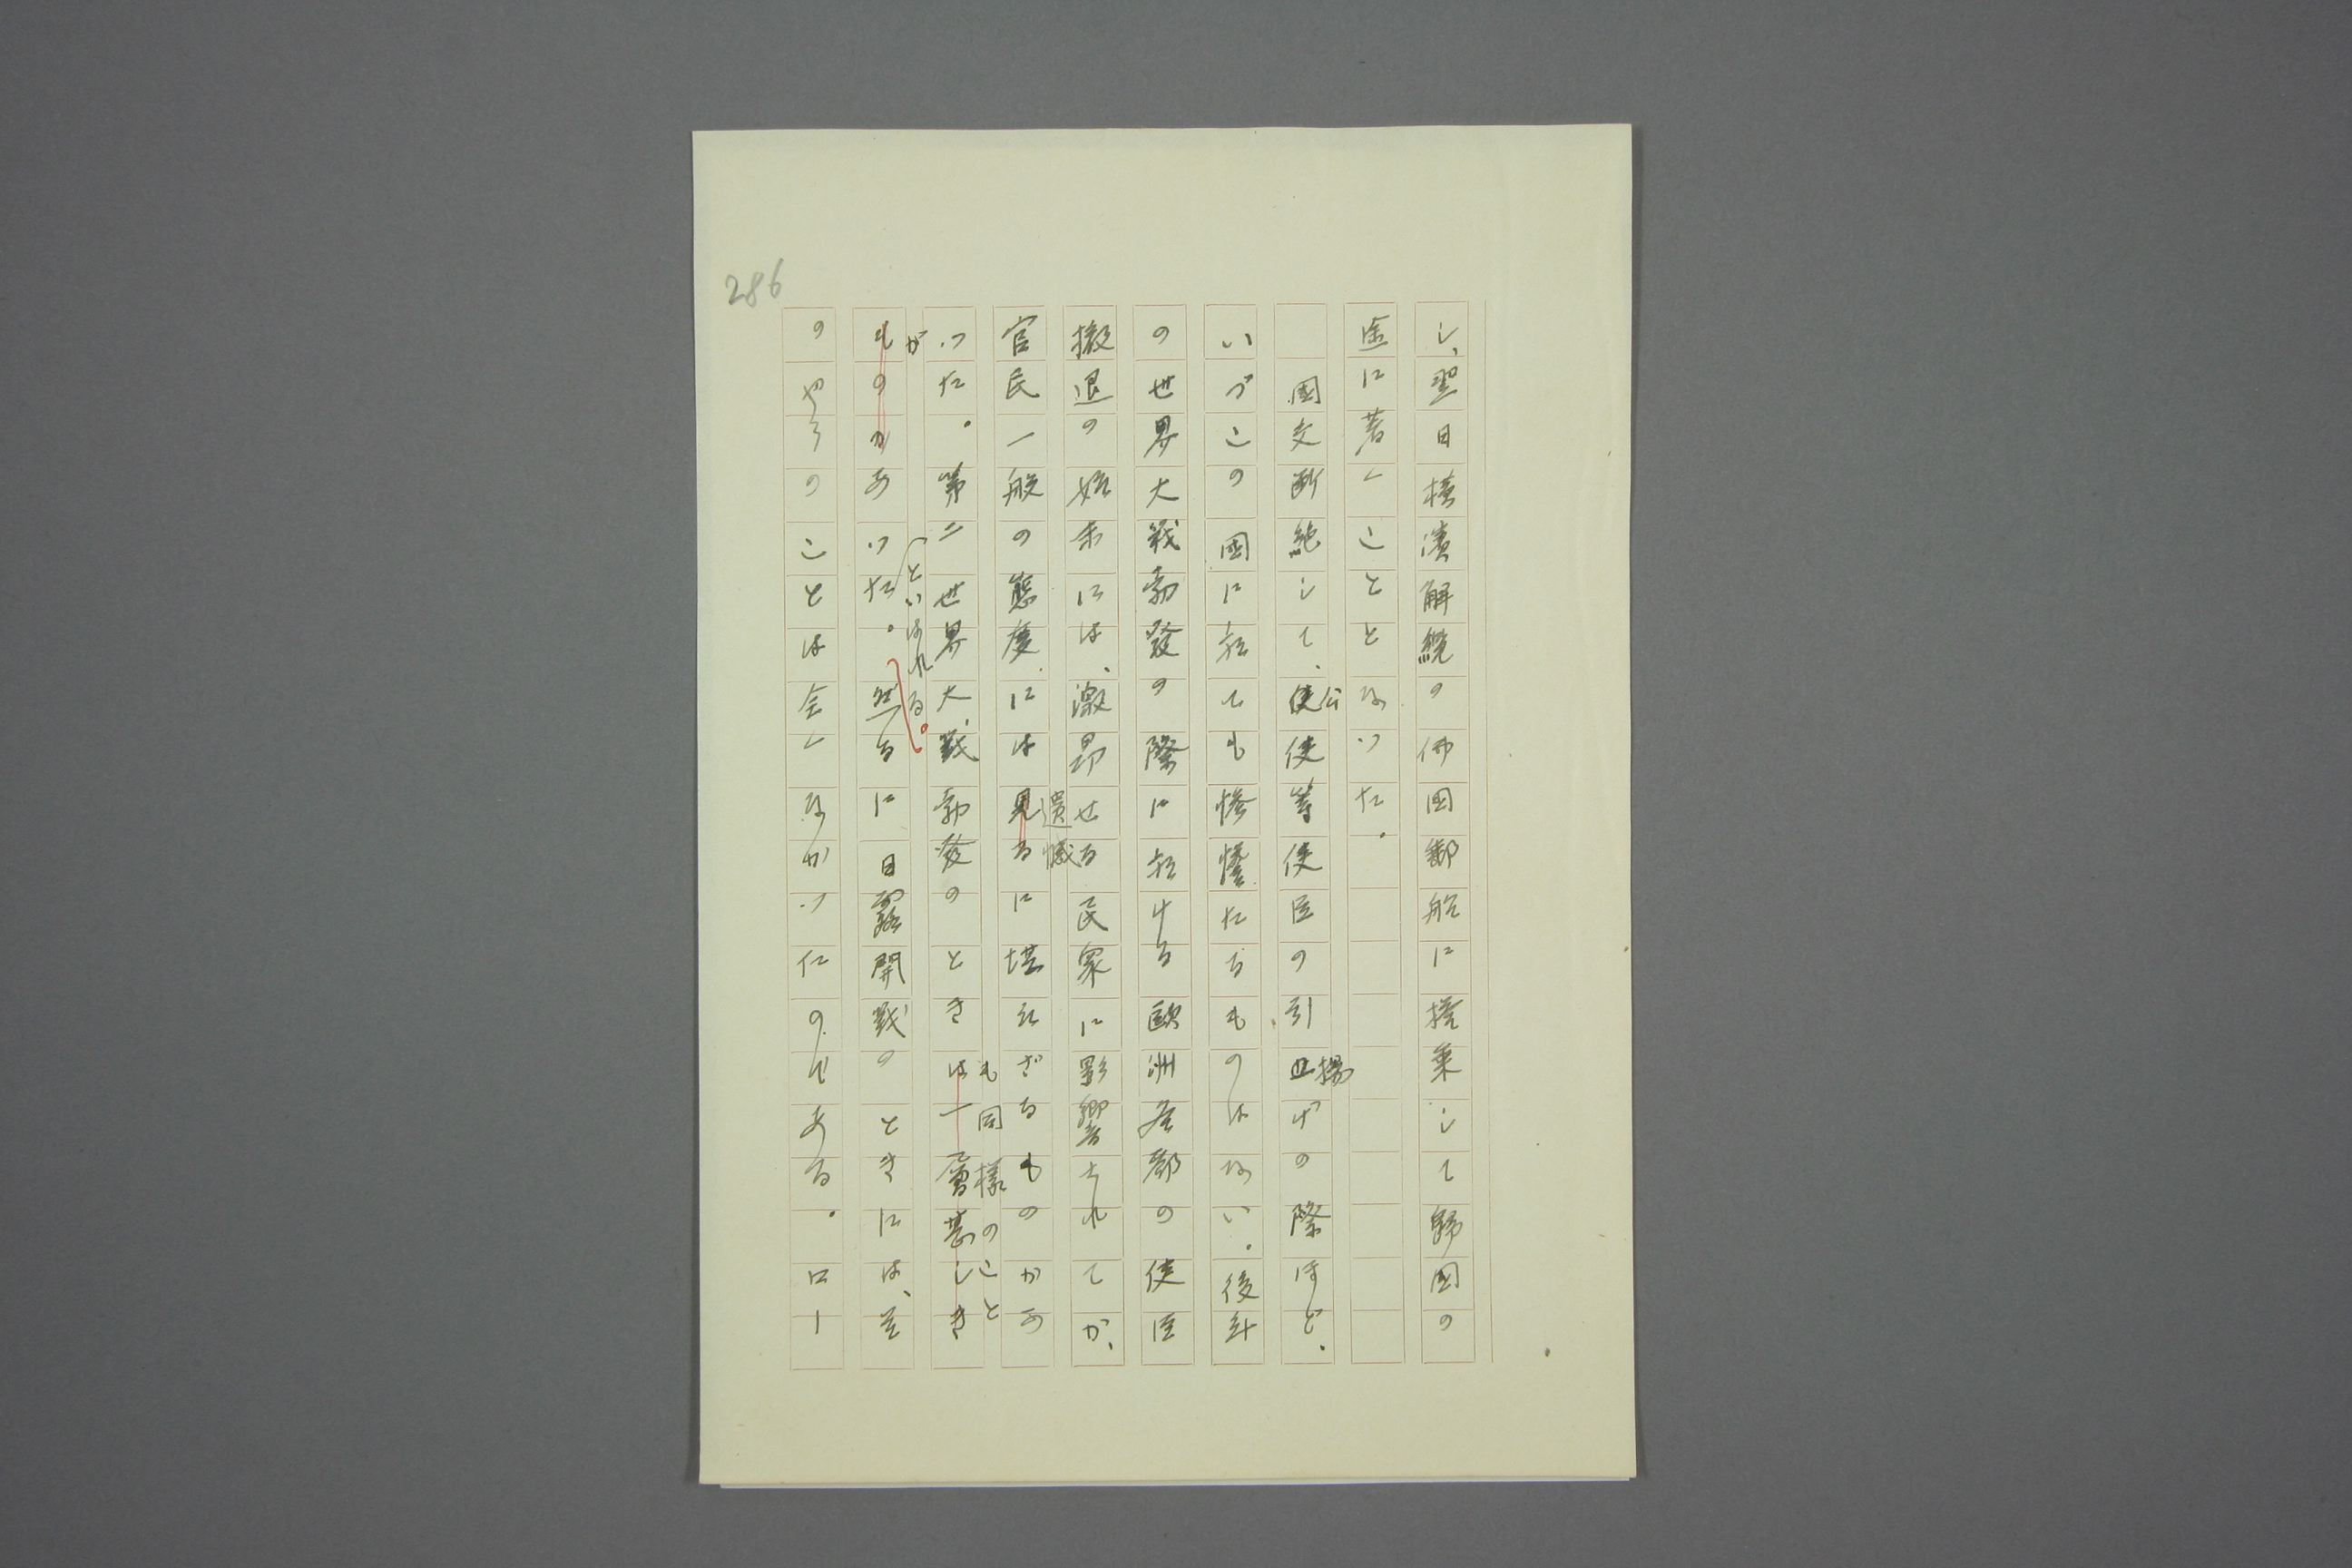 286
し、翌日橫濱解纜の佛国郵船に搭乗して歸国の
途に著くこととなつた。
国交断絶して、公使等使臣の引揚げの際ほど、
いづこの国に於ても惨憺たるものはない。後年
の世界大戦勃發の際に於ける歐洲各都の使臣
撤退の始末には、激昂せる民衆に影響されてか、
官民一般の態度には遺憾に堪えざるものがあ
つた。第二世界大戰勃發のときも同様のこと
があつたといはれる。然るに日露開戰のときには、そ
のやうのことは全くなかつたのである。ロー